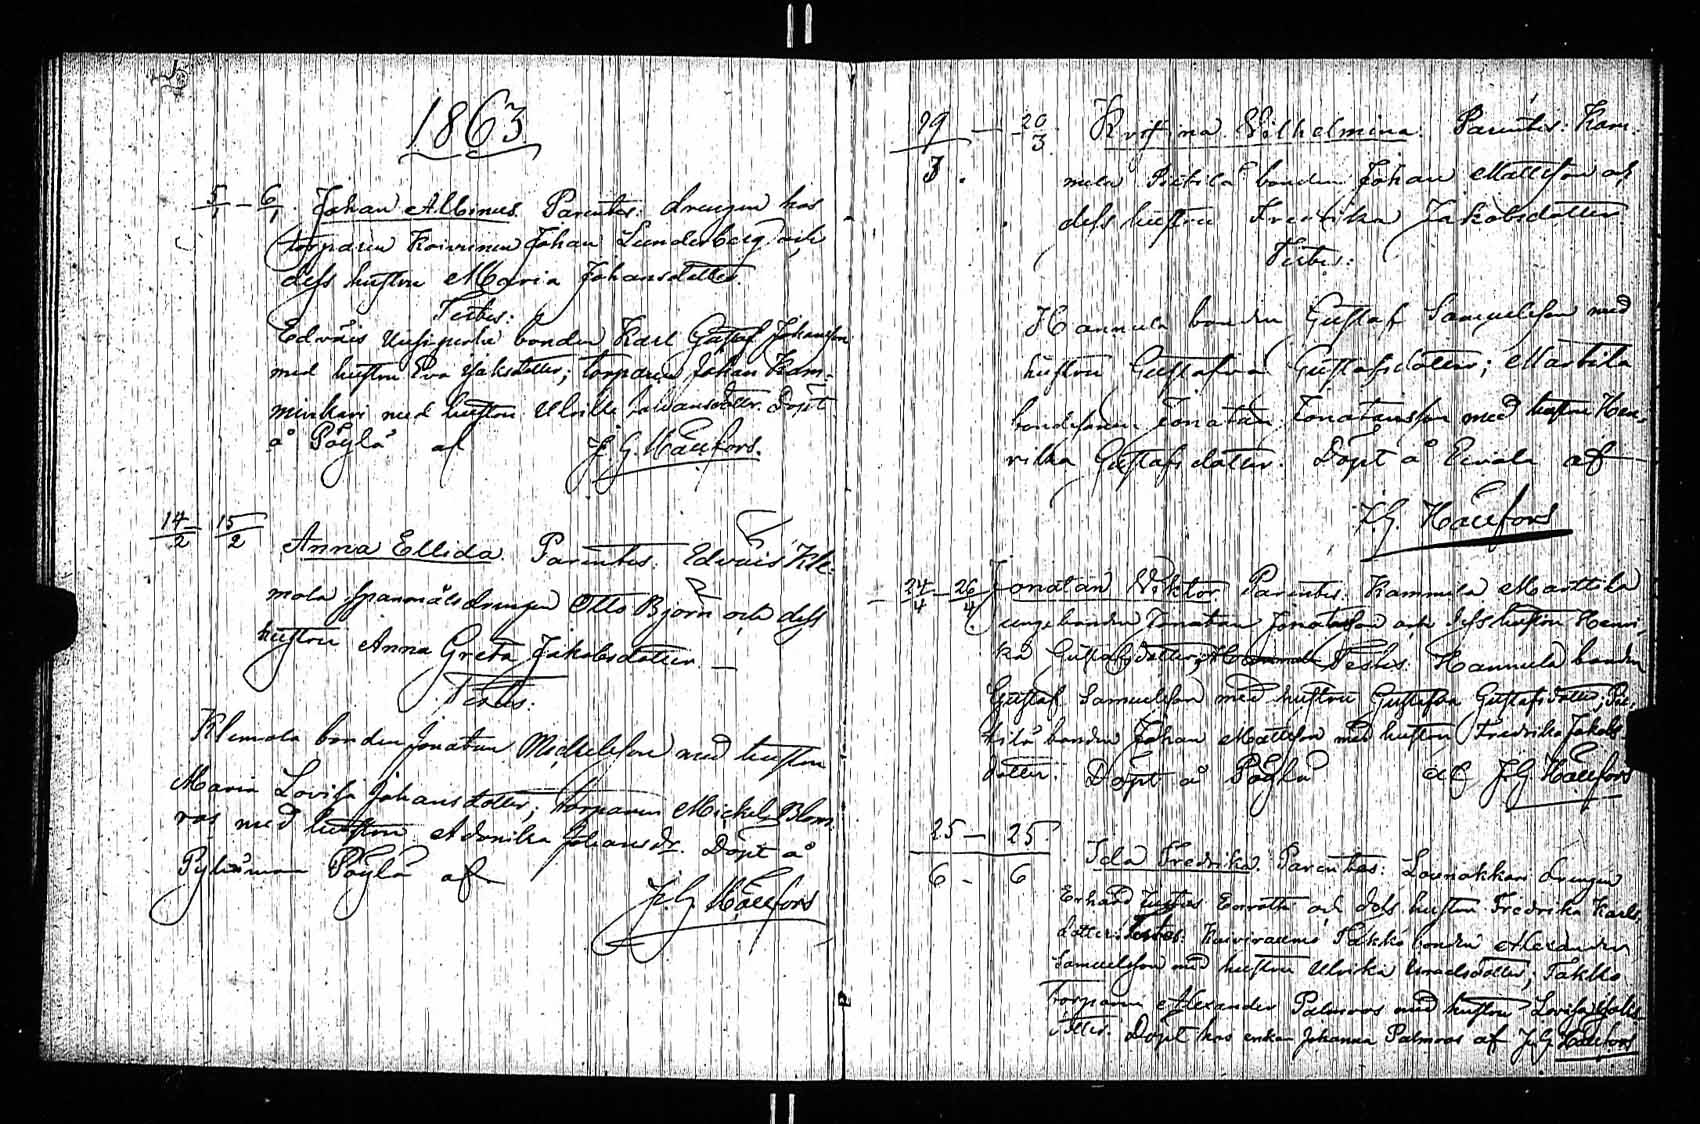 1863
5/1 – 6/1. Johan Albinus. Parentes: drengen hos
torparen Koivunen Johan Lunderberg och
dess hustru Maria Johansdotter.
Testes:
Edväis bonden Karl Gustaf Johansson
med hustru Eva Isaksdotter; torparen Johan Kam-
med hustru Ulrika Johansdotter. Döpt
å Pöylä af J. G. Hällfors.
14/2 15/2 Anna Ellida. Parentes: Edväis Kle-
mola spanmålsdrengen Otto Björn och dess
hustru Anna Greta Jakobsdotter. —
Testes:
Klemola bonden Jonatan Mickelsson med hustru
Maria Lovisa Johansdotter; torparen Mickel Blom
ros med hustru Adonika Johansdr. Döpt å
Pöylä af
J. G. Hällfors
19/3 — 20/3 Kristina Wilhelmina. Parentes: Kam-
mela bonden Johan Mattsson och
dess hustru Fredrika Jakobsdotter
Testes:
Hannula bonden Gustaf Samuelsson med
hustru Gustafva Gustafsdotter; Marttila
bondesonen Jonatan Jonatansson med hustru Hen-
rika Gustafsdotter. Döpt å af
J. G. Hällfors
24/4 – 26/4. Jonatan Viktor. Parentes: Kammela Marttila
unge bonden Jonatan Jonatansson och dess hustru Henri-
ka Gustafsdotter; Testes: Hannula bonden
Gustaf Samuelsson med hustru Gustafva Gustafsdotter; Pie-
tilä bonden Johan Mattsson med hustru Fredrika Jakobs-
dotter. Döpt å Pöylä af J G Hällfors
25/6 – 25/6. Ida Fredrika. Parentes: Lounokkari drengen
Erhard Justus och dess hustru Fredrika Karls-
dotter. Testes: Kuiviraumo Takko bonden Alexander
Samuelsson med hustru Ulrika Israelsdotter; Takko
torparen Alexander Palmros med hustru Lovisa
dotter. Döpt hos enkan Johanna Palmros af J. G Hällfors